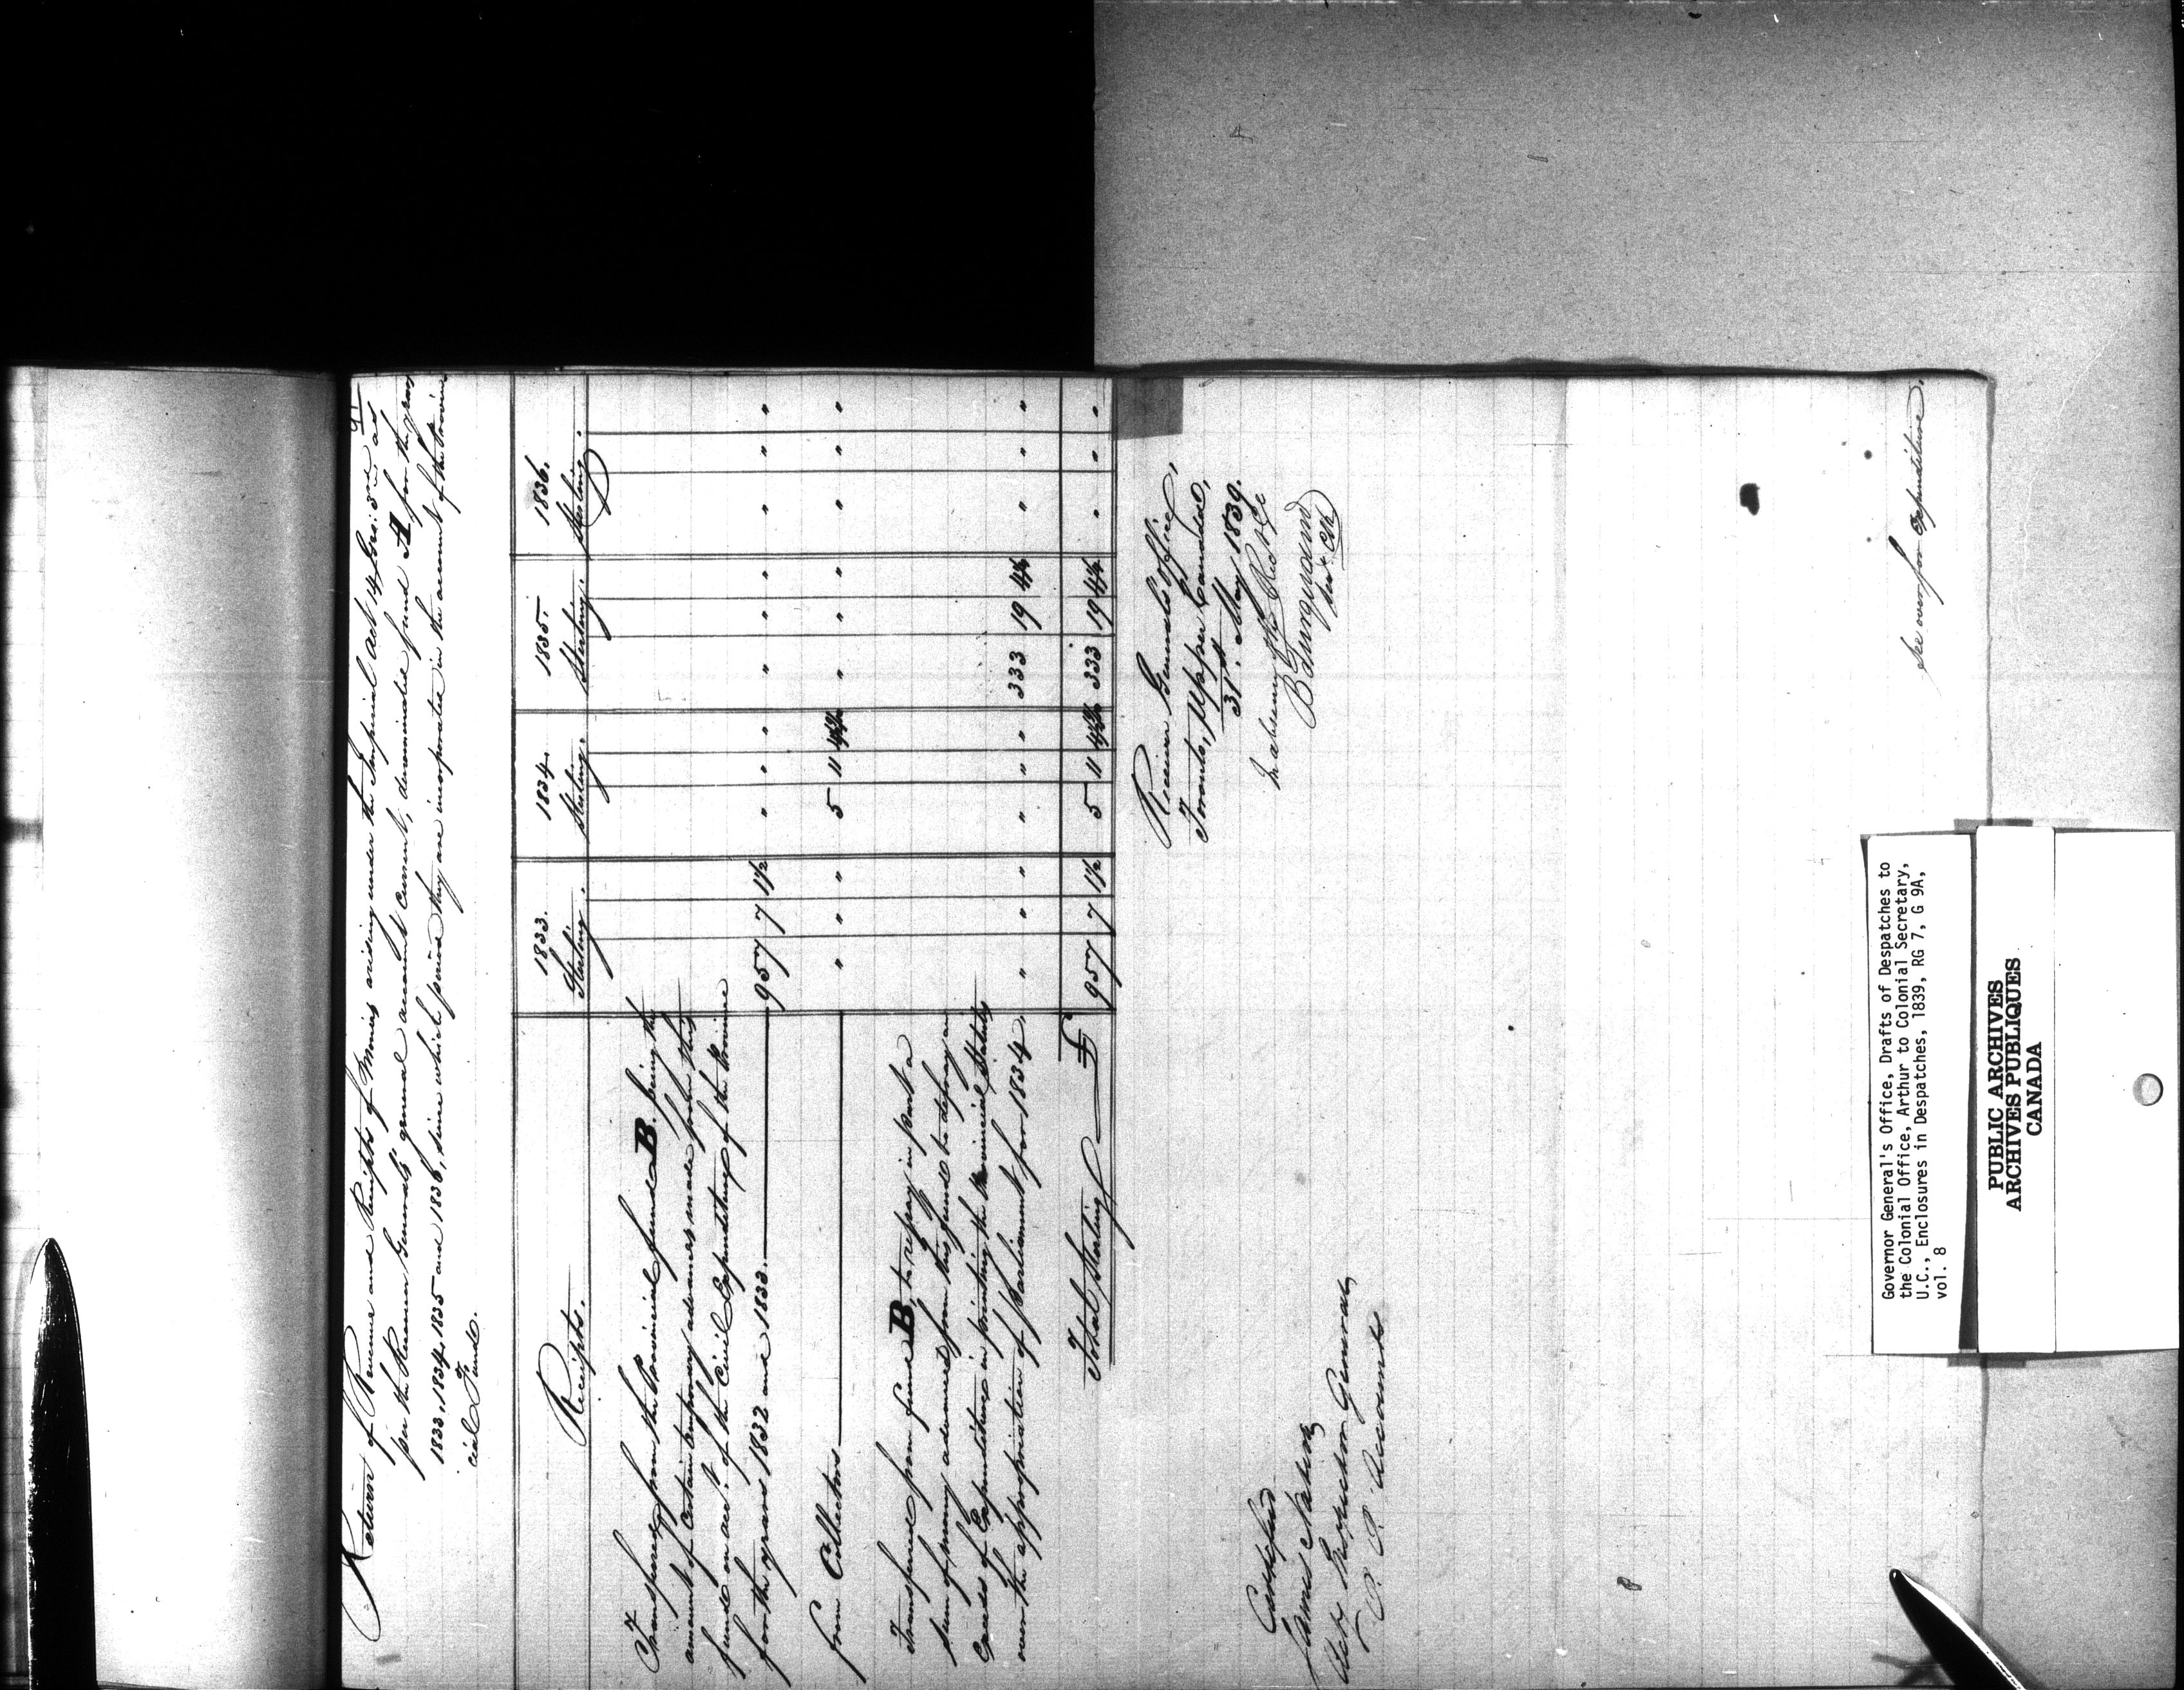 91
Return of Revenue and Receipts of Monies arising under the Imperial Act 14 Geo: 3rd as
per the Receiver General's general account current, denominated fund A for the years
1833, 1834, 1835 and 1836, since which period they are incorporated in the account of the Provin
cial Fund.
Receipts. 1833. Sterling. 1834. Sterling. 1835. Sterling. 1836. Sterling.
Transferred from the Provincial fund B. being the
amount of certain temporary advances made from this
fund on acct. of the Civil Expenditure of the Province
for the years 1832 and 1833. 957 7 1½ " " " " " " " " "
from Collectors " " " 5 11 " " " " " "
Transferred from fund B, to repay in part a
sum of money advanced from this fund to defray an
excess of Expenditure in printing the Provincial Statutes
over the appropriation of Parliament for 1834. " " " " " " 333 19 4½ " " "
Total Sterling £ 957 7 1½ 5 11 333 19 4½ " " "
Receiver General's Office,
Toronto, Upper Canada,
31st. May 1839.
In absence of the Rec. Gl
B Turquand
Certified
James Nation
Acty Inspector General
P. P. Accounts
See over for Expenditure.
Governor General's Office, Drafts of Despatches to
the Colonial Office, Arthur to Colonial Secretary,
U.C., Enclosures in Despatches, 1839, RG 7, G 9A,
vol. 8
PUBLIC ARCHIVES
ARCHIVES PUBLIQUES
CANADA